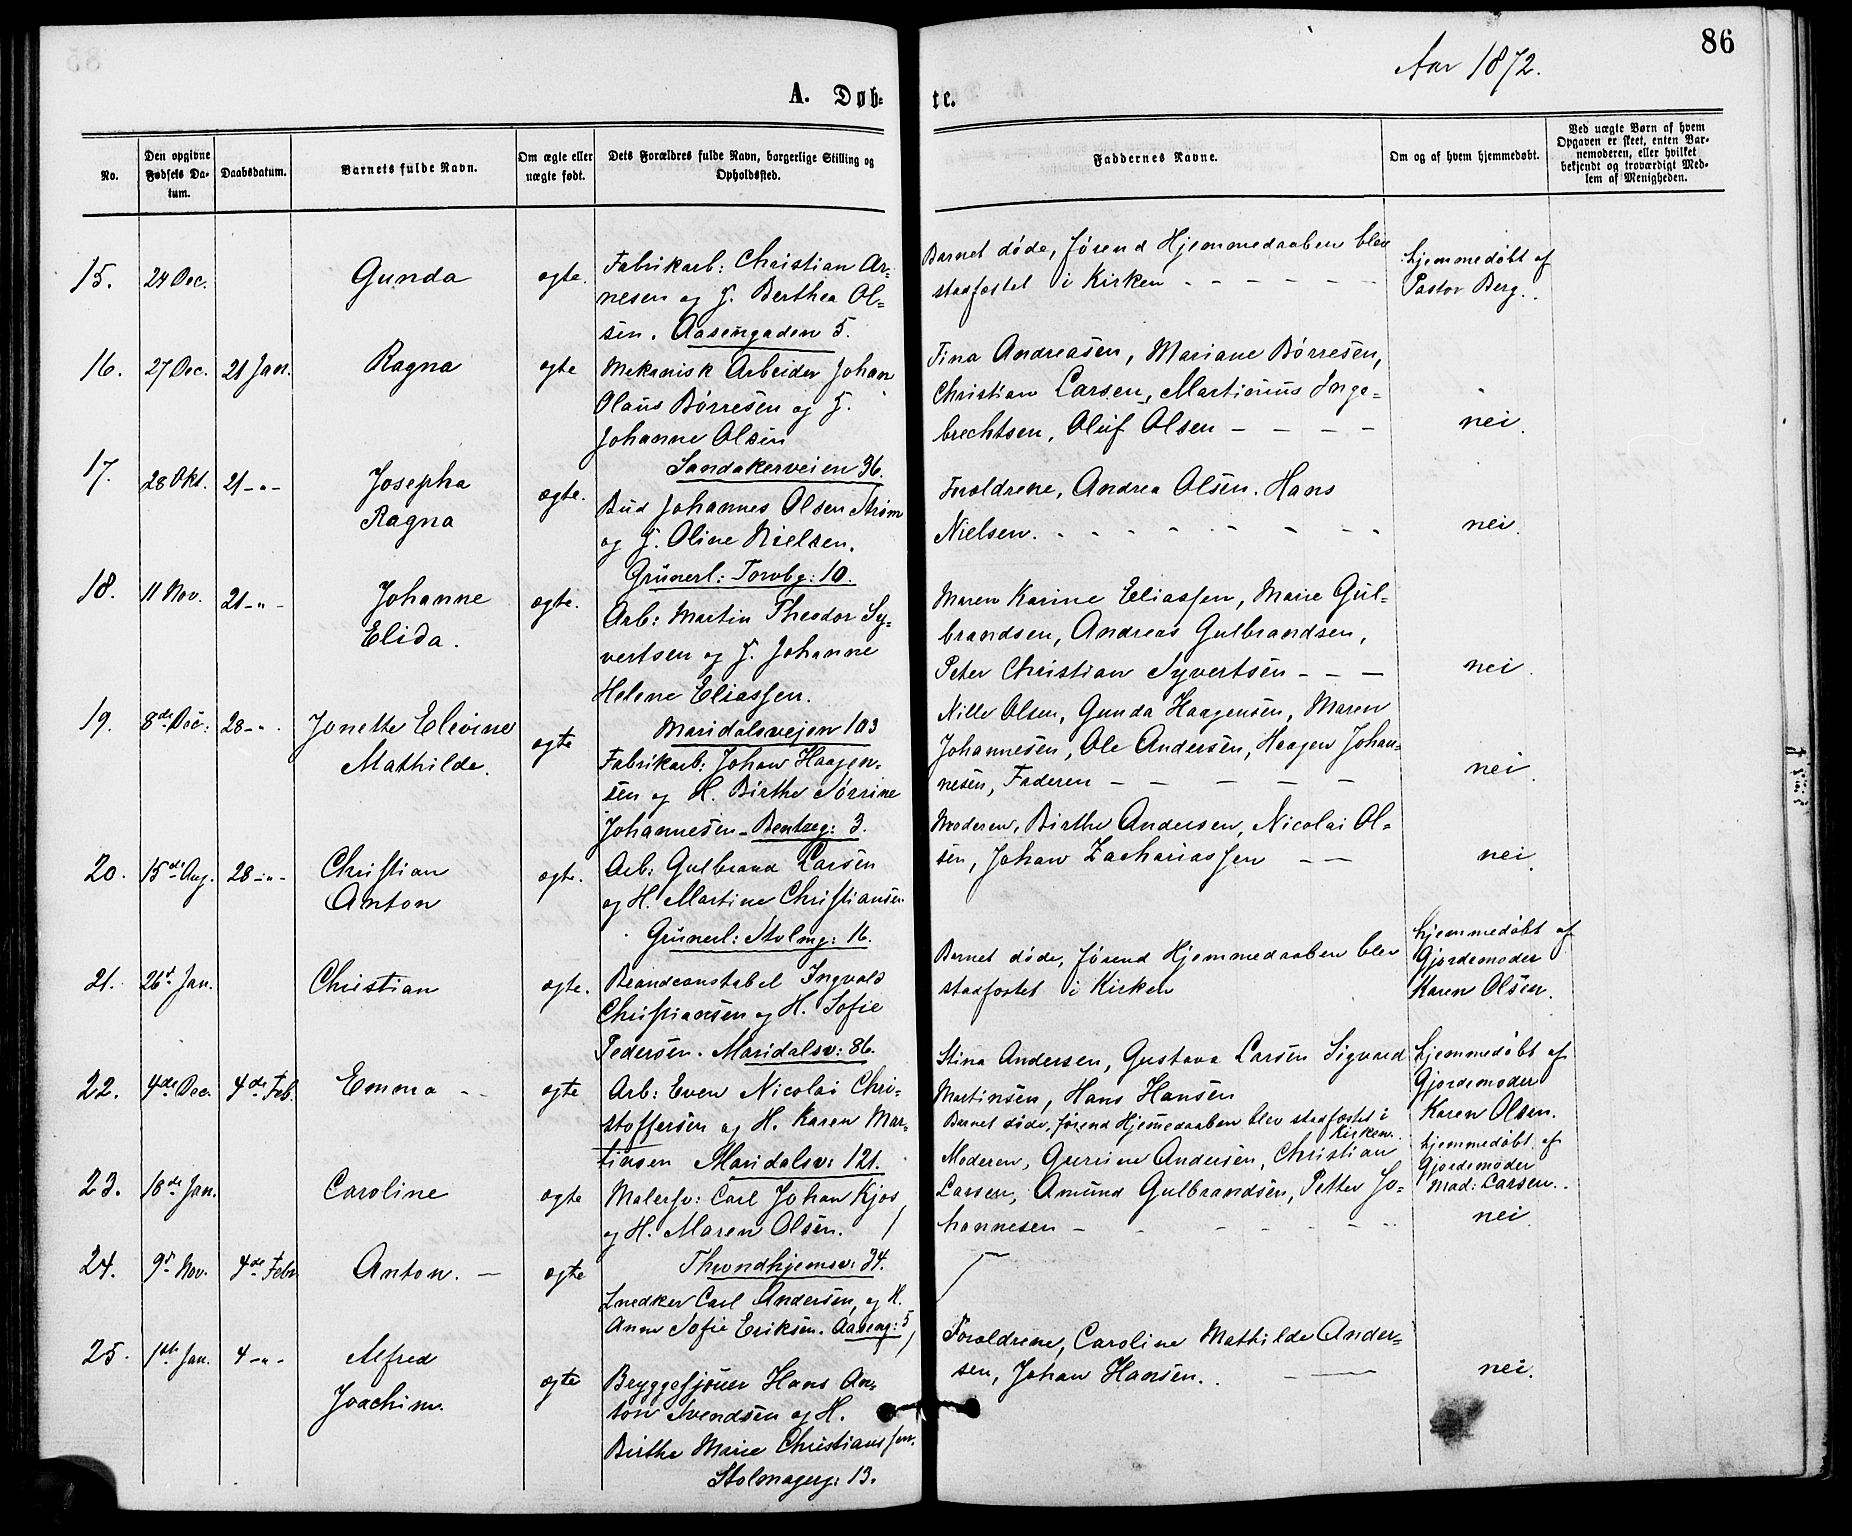 86
Aar 1872.
A. Døb-
te.
No.
Den opgivne Fødsels Datum.
Daabsdatum.
Barnets fulde Navn.
Om ægte eller uægte født.
Dets Forældres fulde Navn, borgerlige Stilling og Opholdssted.
Faddernes Navne.
Om og af hvem hjemmedøbt.
Ved uægte Børn af hvem Opgaven er skeet, enten Barnemoderen, eller hvilket bekjendt og troværdigt Medlem af Menigheden.
15. 24 Dec. Gunda ægte.
Fabrikarb: Christian Ar-
nesen og H. Berthea Ol-
sen. Aasengaden 5.
Barnet døde, førend Hjemmedaaben blev
stadfæstet i Kirken - - - - -
hjemmedøbt af
Pastor Berg.
16. 27 Dec. 21 Jan. Ragna ægte
Mekanisk Arbeider Johan
Olaus Børresen og H.
Johanne Olsen
Sandakerveien 36.
Tina Andreasen, Mariane Børresen,
Christian Larsen, Martinius Inge-
brechtsen, Oluf Olsen - - - -
nei.
17. 28 Okt. 21 -"- Josepha
Ragna
ægte.
Bud Johannes Olsen Strøm
og H. Oline Nielsen.
Grünerl: Torvbg: 10.
Forældrene, Andrea Olsen. Hans
Nielsen. - - - - - - -
nei.
18. 11 Nov. 21 -"- Johanne
Elida.
ægte.
Arb: Martin Theodor Sy-
vertsen og H. Johanne
Helene Eliassen.
Maridalsvejen 103
Maren Karine Eliassen, Marie Gul-
brandsen, Andreas Gulbrandsen,
Peter Christian Syvertsen - - -
nei.
19. 8de Dec: 28 -"- Jonette Elevine
Mathilde.
ægte
Fabrikarb: Johan Haagen-
sen og H. Birthe Sørrine
Johannesen - Bentzeg: 3.
Nille Olsen, Gunda Haagensen, Maren
Johannesen, Ole Andersen, Haagen Johan-
nesen, Faderen - - - - -
nei.
20. 15de Aug. 28 -"- Christian
Anton
ægte.
Arb: Gulbrand Larsen
og H. Martine Christiansen
Grünerl: Stolmg: 16.
Moderen, Birthe Andersen, Nicolai Ol-
sen, Johan Zachariassen - -
nei.
21. 26d Jan. Christian ægte.
Brandconstabel Ingvald
Christiansen og H. Sofie
Pedersen. Maridalsv: 86.
Barnet døde, førend Hjemmedaaben blev
stadfæstet i Kirken
hjemmedøbt af
Gjordemoder
Karen Olsen.
22. 4de Dec. 4de Feb. Emma - - ægte
Arb: Even Nicolai Chri-
stoffersen og H. Karen Mar-
tinsen Maridalsv: 121.
Stina Andersen, Gustava Larsen Sigvard
Martinsen, Hans Hansen
hjemmedøbt af
Gjordemoder
Karen Olsen.
23. 18de Jan. Caroline ægte
Malersv: Carl Johan Kjos
og H. Maren Olsen.
Throndhjemsv: 34.
Barnet døde, førend Hjemedaaben blev stadfæstet i
Kirken.
hjemmedøbt af
Gjordemoder
Mad: Larsen.
24. 9d Nov. 4de Febr Anton. - ægte
Snedker Carl Andersen, og H.
Anne Sofie Eriksen. Aaseng: 5
Moderen, Gurine Andersen, Christian
Larsen, Amund Gulbrandsen, Petter Jo-
hannesen - - - - - - -
nei.
25. 1ste Jan. 4 -"- Alfred
Joachim.
ægte
Bryggesjouer Hans An-
ton Svendsen og H.
Birthe Marie Christianssen.
Stolmagerg: 13.
Forældrene, Caroline Mathilde Ander-
sen, Johan Hansen. - -
nei.